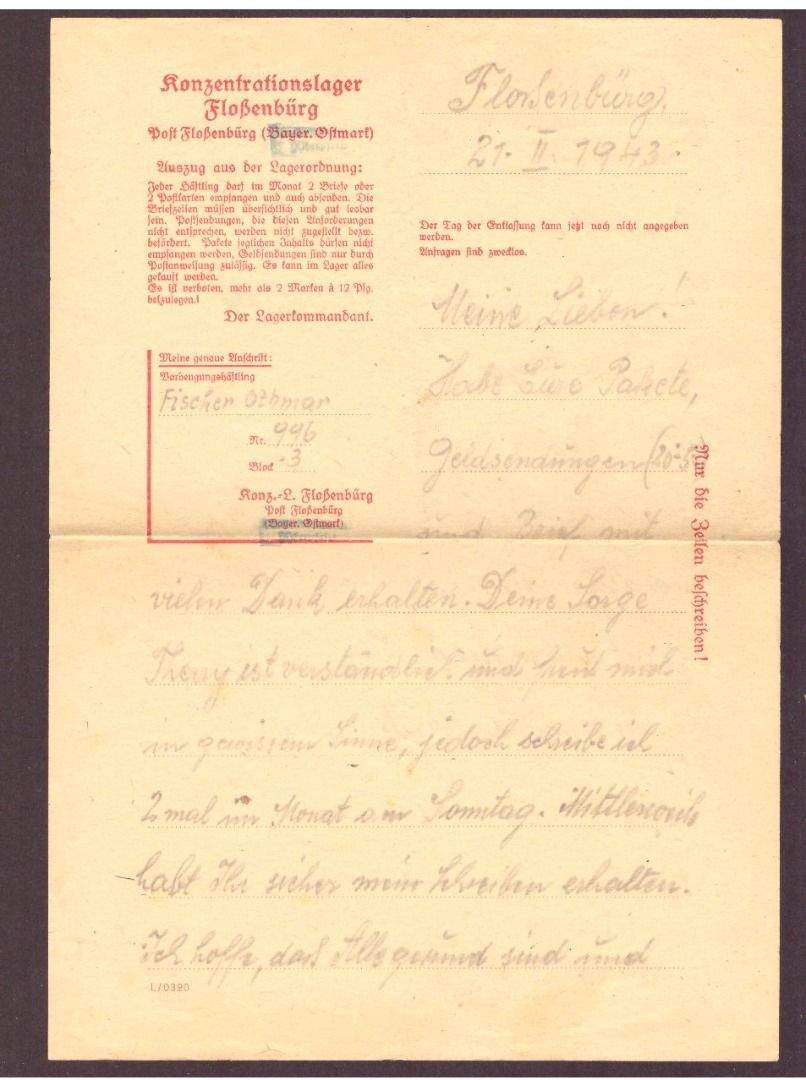 Konzentrationslager
Floßenbürg
Post Floßenbürg (Bayer. Ostmark)
Auszug aus der Lagerordnung:
Jeder Häftling darf im Monat 2 Briefe oder
2 Postkarten empfangen und auch absenden. Die
Briefzeilen müssen übersichtlich und gut lesbar
sein. Postsendungen, die diesen Anforderungen
nicht entsprechen, werden nicht zugestellt bezw.
befördert. Pakete jeglichen Inhalts dürfen nicht
empfangen werden, Geldsendungen sind nur durch
Postanweisung zulässig. Es kann im Lager alles
gekauft werden.
Es ist verboten, mehr als 2 Marken à 12 Pfg.
beizulegen!
Der Lagerkommandant.
Meine genaue Anschrift:
Vorbeugungshäftling
Fischer Othmar
Nr. 996
Block -3
Konz.-L. Floßenbürg
Post Floßenbürg
(Bayer. Ostmark)
Flossenbürg,
21. II. 1943.
Der Tag der Entlassung kann jetzt noch nicht angegeben
werden.
Anfragen sind zwecklos.
Meine Lieben!
Habe Eure Pakete,
Geldsendungen
und Brief mit
vielen Dank erhalten. Deine Sorge
ist verständlich und freut mich
in gewissem Sinne, jedoch schreibe ich
2 mal im Monat am Sonntag. Mittlerweile
habt Ihr sicher mein Schreiben erhalten.
Ich hoffe, dass Alle gesund sind und
Nur die Zeilen beschreiben!
L/0390